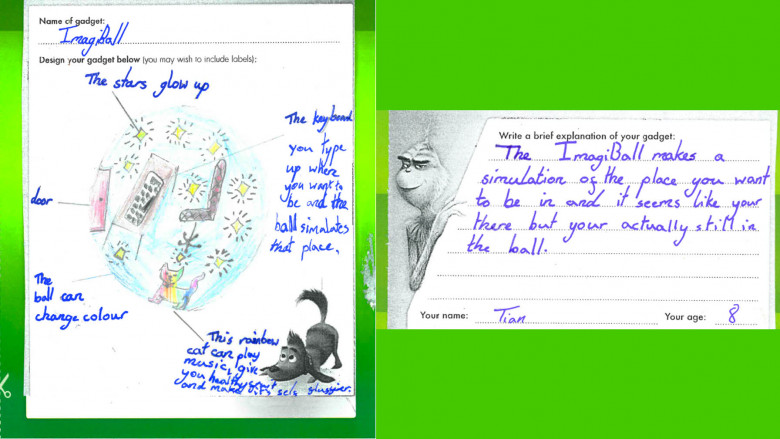 Name of gadget:
ImagiBall
Design your gadget below (you may wish to include labels):
The stars glow up
The keyboard
you type
up where
you want to
be and the
ball simalates
that place.
door
The
ball can
change colour
This rainbow
cat can play
music, give
you healthy
and make it's self
Write a brief explanation of your gadget:
The ImagiBall makes a
simulation of the place you want
to be in and it seems like your
there but your actually still in
the ball.
Your name: Tian
Your age: 8